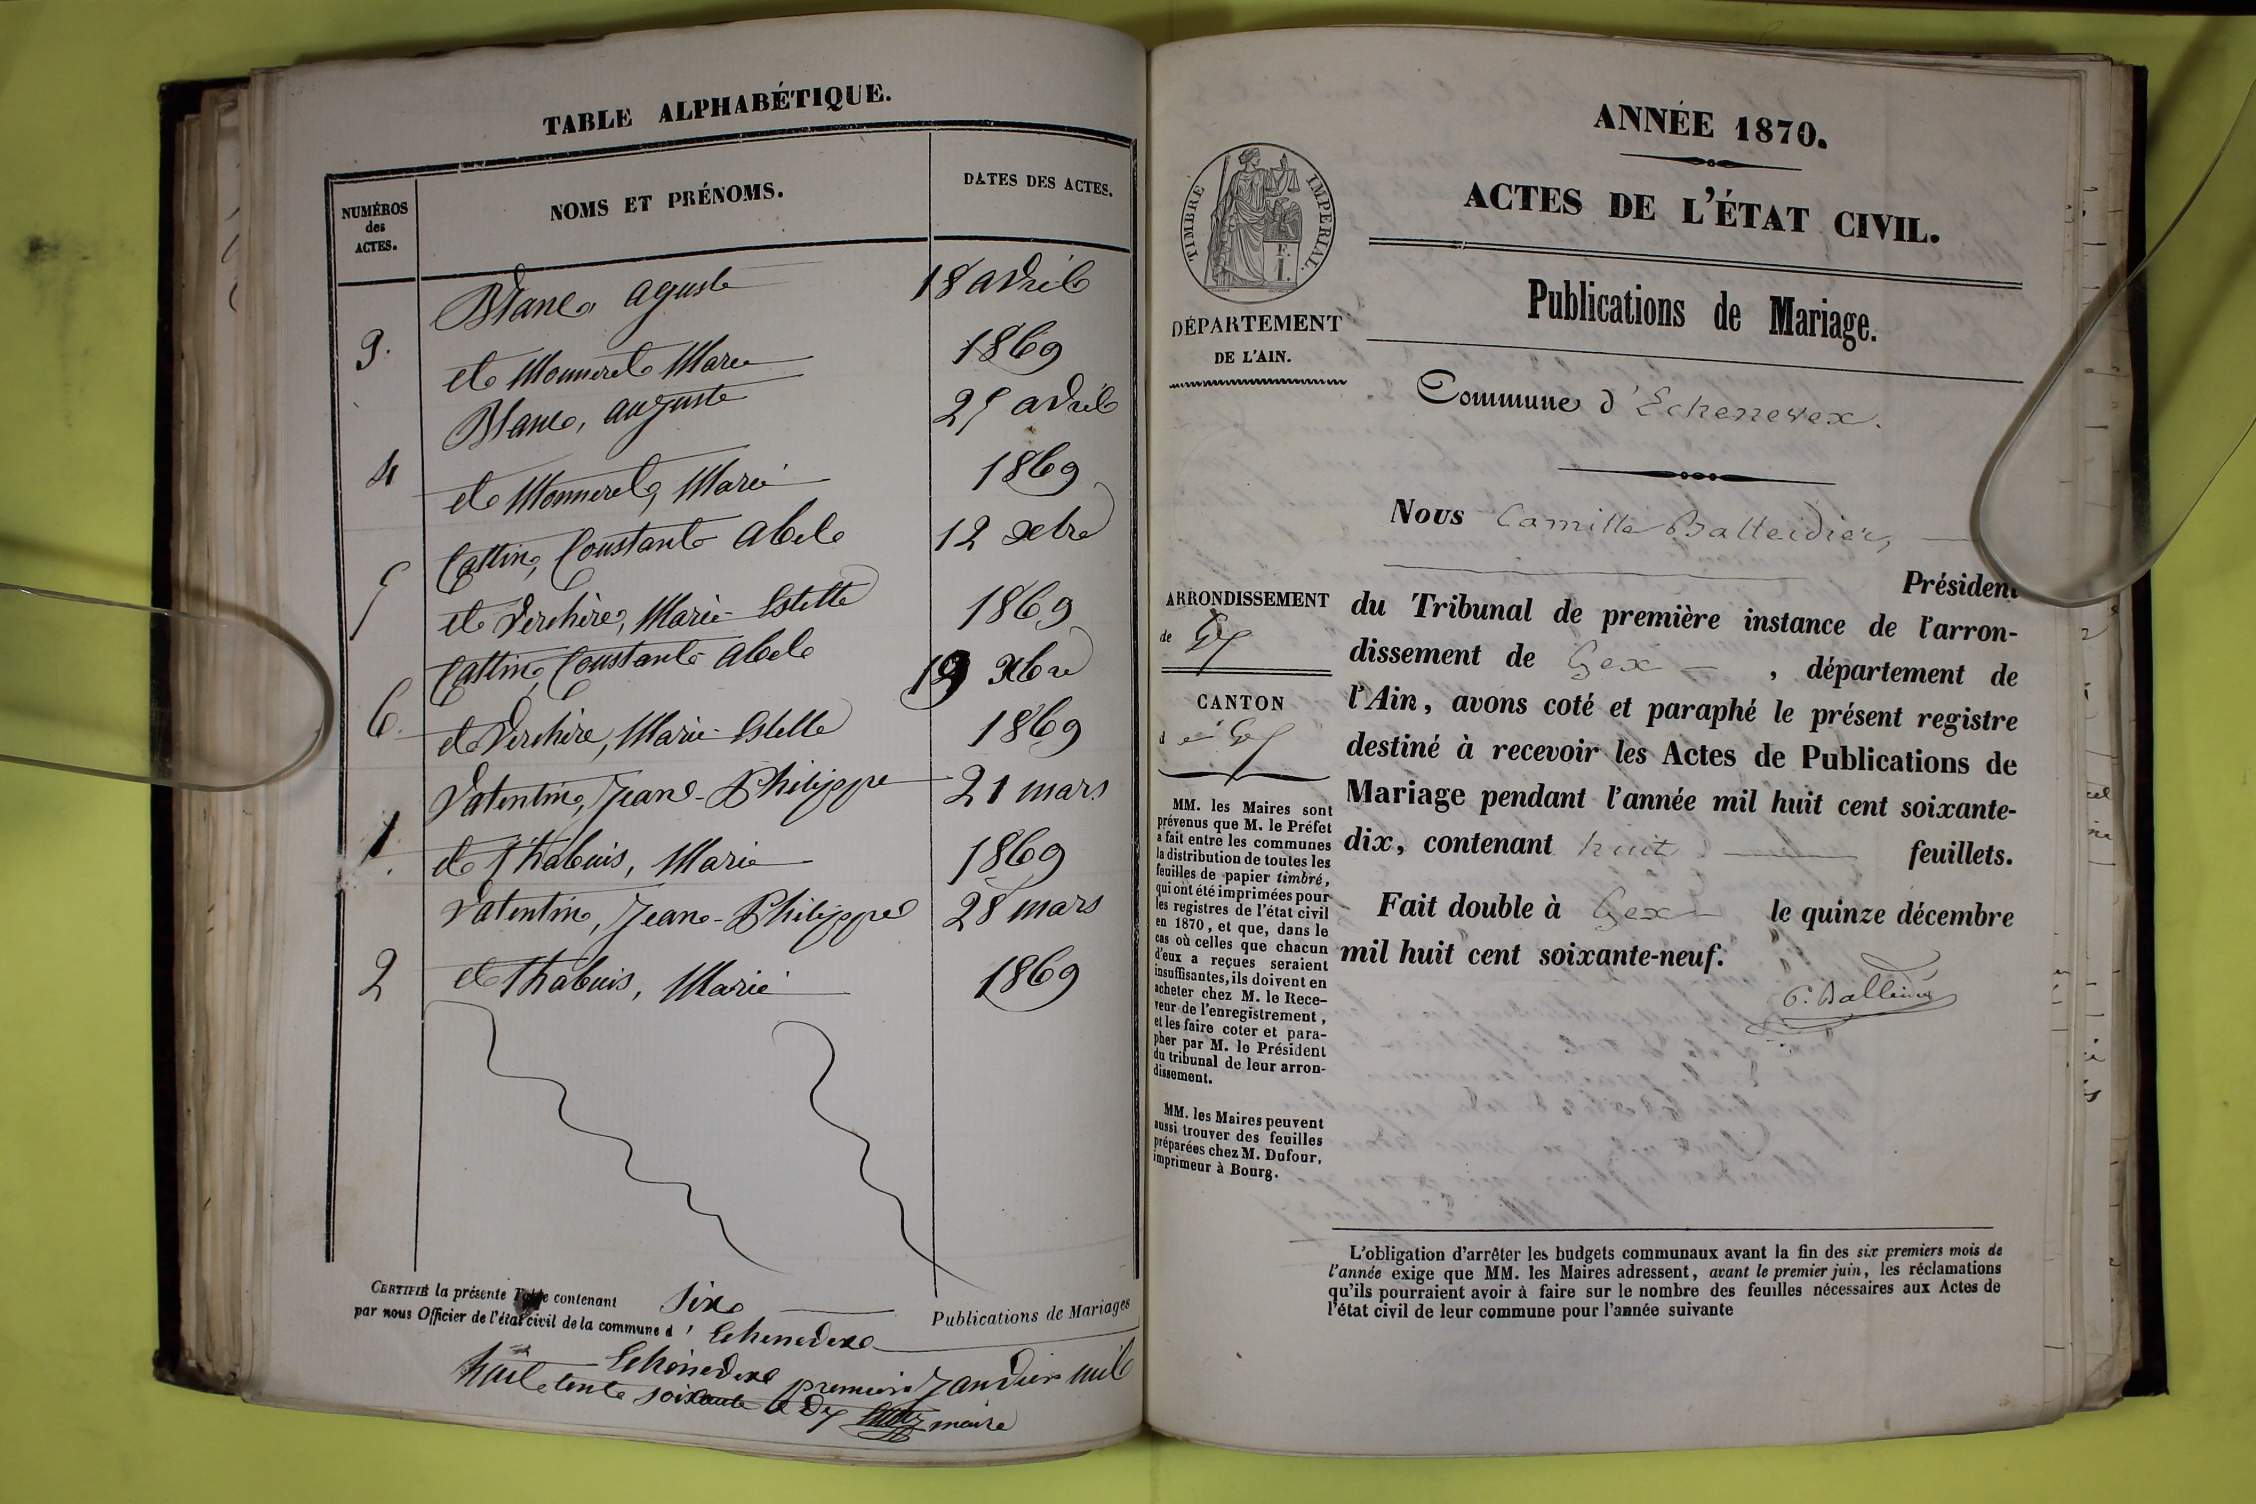 TABLE ALPHABÉTIQUE.
NUMÉROS
des
ACTES.
NOMS ET PRÉNOMS.
DATES DES ACTES.
Blanc, aguste 18 avril
3. et Monneret Marie 1869
Blanc, auguste 25 avril
4 et Monneret, Marie 1869
Cattin, Constant Abel 12 xbre
5 et Verchère, Marie-Estelle 1869
Cattin, Constant Abel 19 xbre
6. et Verchère, Marie-Estelle 1869
Valentin, Jean-Philippe 21 mars
1. et Thabuis, Marie 1869
Valentin, Jean-Philippe 28 mars
2 et Thabuis, Marie 1869
CERTIFIÉ la présente Table contenant six Publications de Mariages
par nous Officier de l'état civil de la commune d' Echenevex
Echenevex premier Janvier mil
huit cent soixante et dix maire
ANNÉE 1870.
ACTES DE L'ÉTAT CIVIL.
TIMBRE IMPERIAL.
F.
I.
DÉPARTEMENT
DE L'AIN.
Publications de Mariage.
Commune d'Echenevex.
Nous Camille Balleidier,
Président
ARRONDISSEMENT
de Gex
CANTON
d e Gex
du Tribunal de première instance de l'arron-
dissement de Gex, département de
l'Ain, avons coté et paraphé le présent registre
destiné à recevoir les Actes de Publications de
Mariage pendant l'année mil huit cent soixante-
dix, contenant huit feuillets.
Fait double à Gex le quinze décembre
mil huit cent soixante-neuf.
C. Balleidier
MM. les Maires sont
prévenus que M. le Préfet
a fait entre les communes
la distribution de toutes les
feuilles de papier timbré,
qui ont été imprimées pour
les registres de l'état civil
en 1870, et que, dans le
cas où celles que chacun
d'eux a reçues seraient
insuffisantes, ils doivent en
acheter chez M. le Rece-
veur de l'enregistrement,
et les faire coter et para-
pher par M. le Président
du tribunal de leur arron-
dissement.
MM. les Maires peuvent
aussi trouver des feuilles
préparées chez M. Dufour,
imprimeur à Bourg.
L'obligation d'arrêter les budgets communaux avant la fin des six premiers mois de
l'année exige que MM. les Maires adressent, avant le premier juin, les réclamations
qu'ils pourraient avoir à faire sur le nombre des feuilles nécessaires aux Actes de
l'état civil de leur commune pour l'année suivante